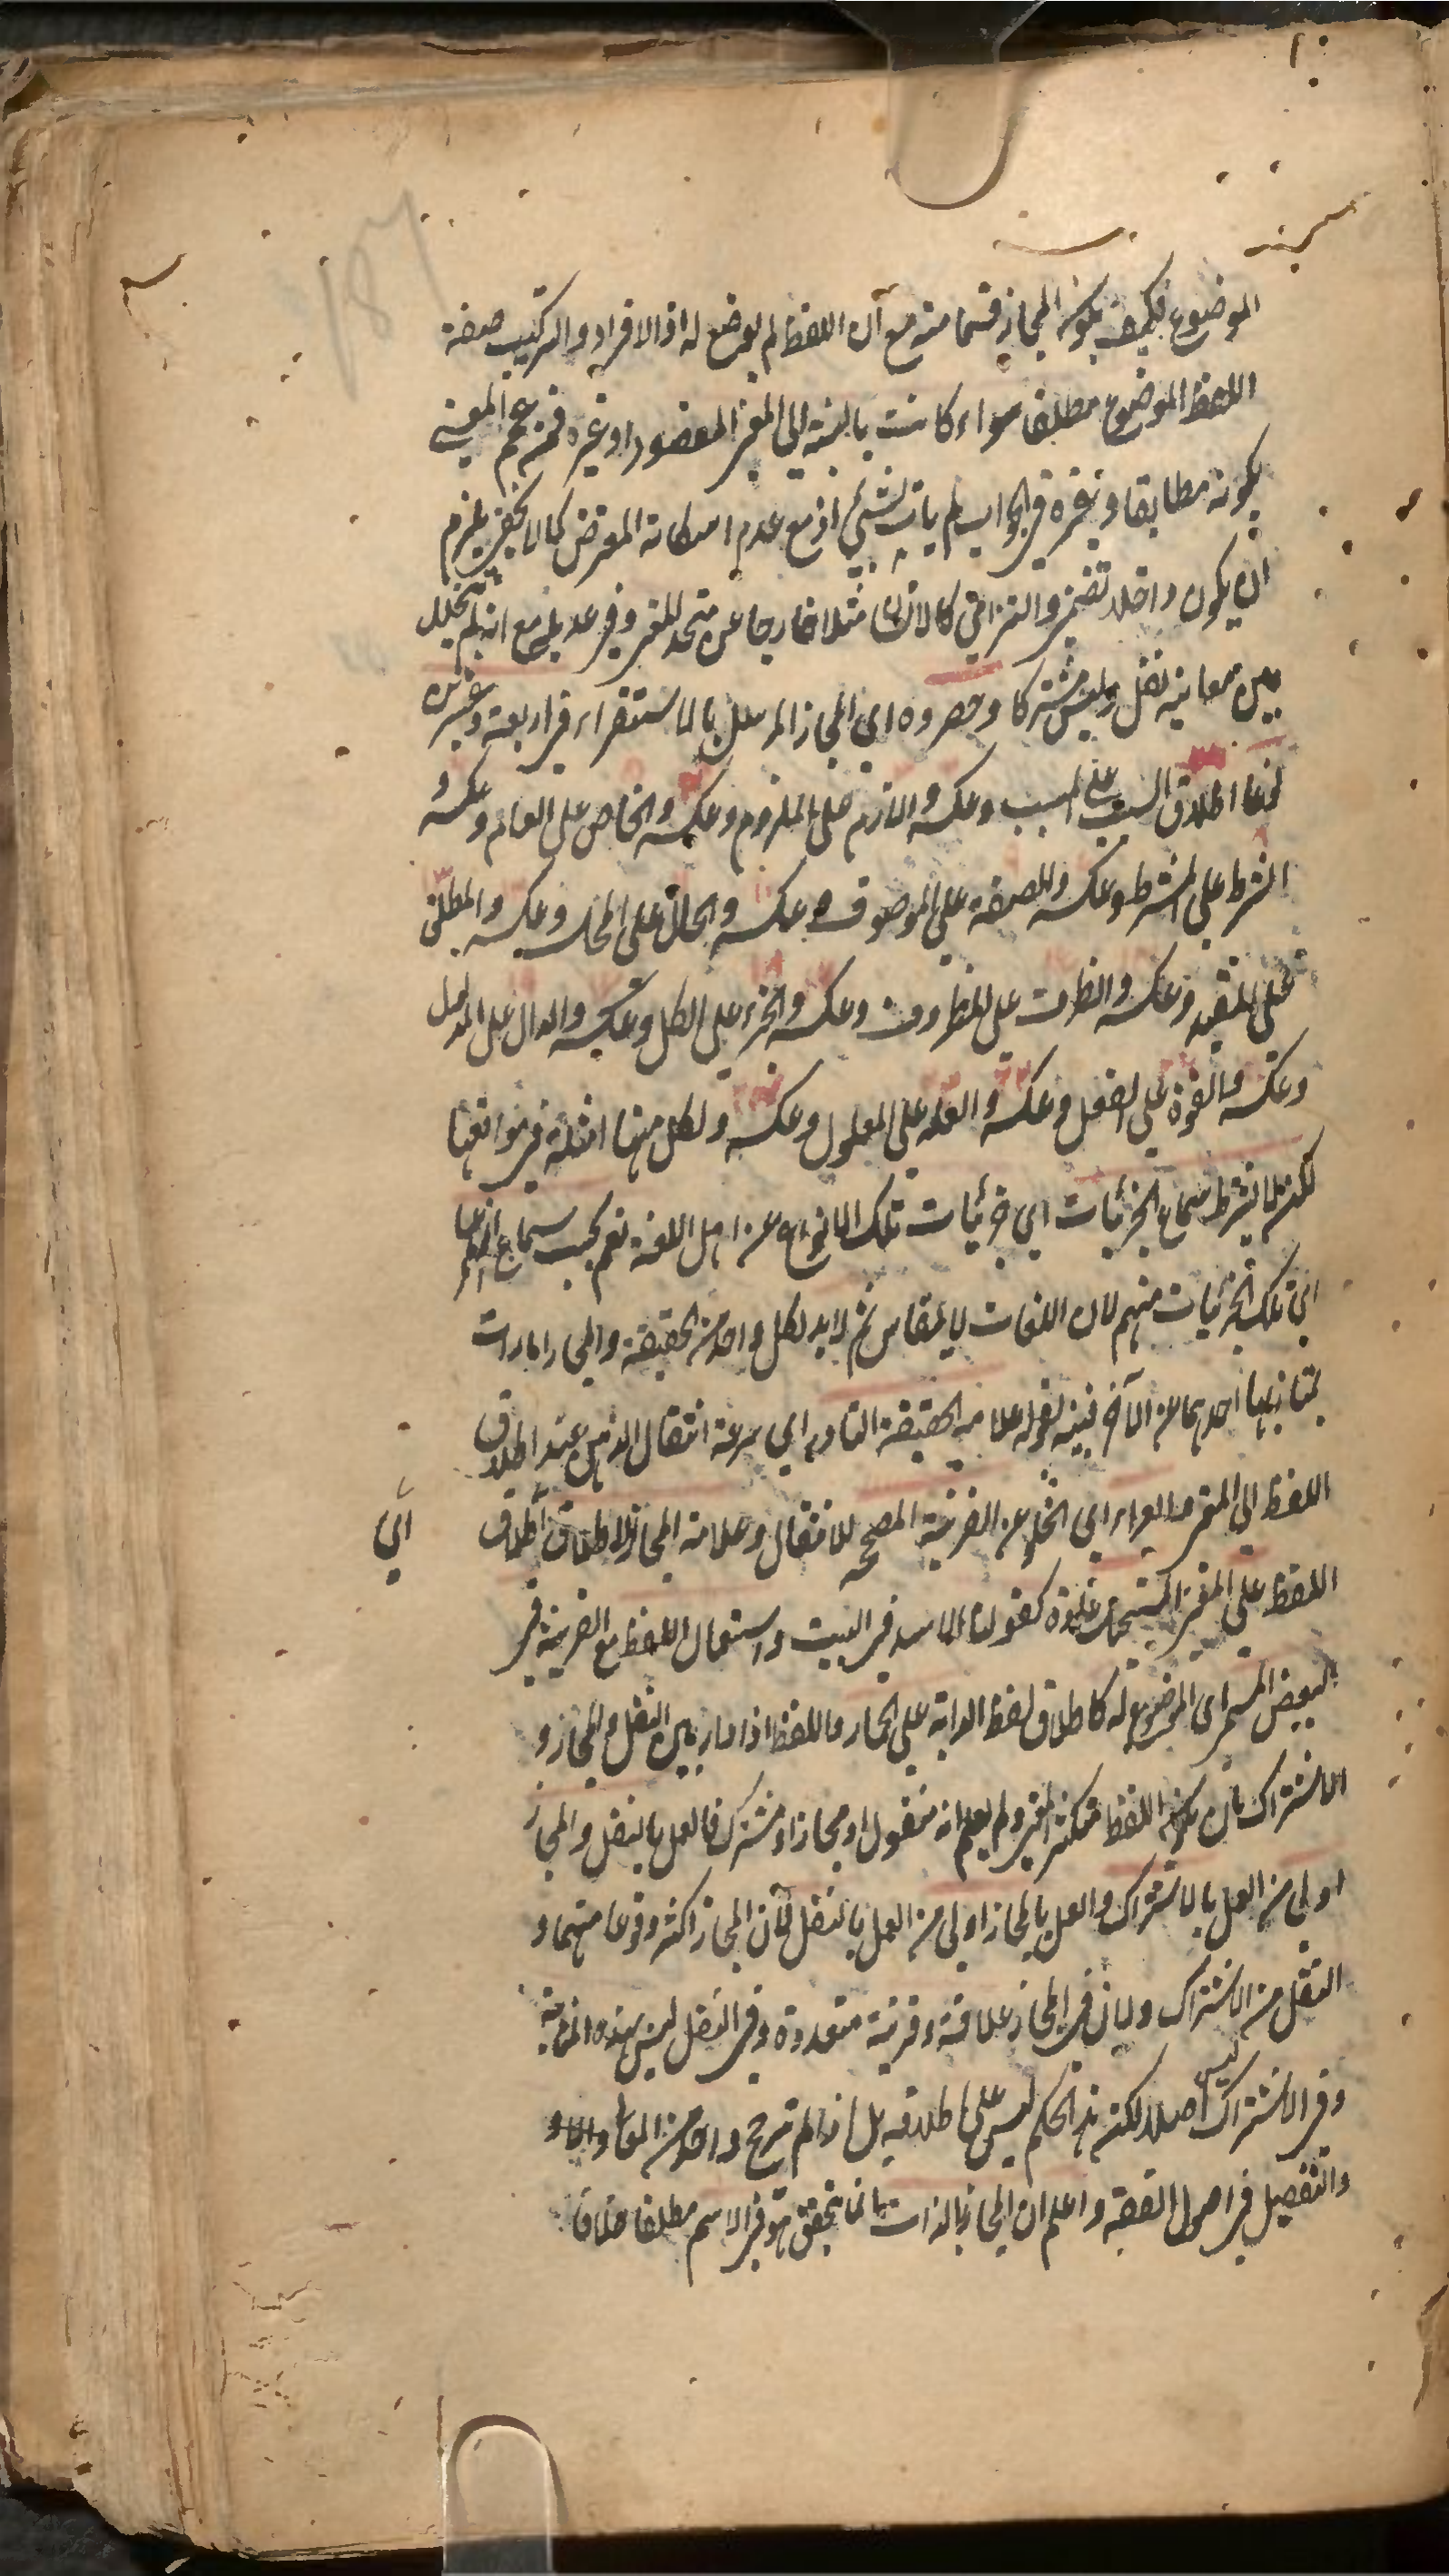 الموضوع فكيف يكون المجاز قسما منه مع ان اللفظ لم يوضع له اذ الافراد والتركيب صفة
اللفظ الموضوع مطلقا سواء كانت بالنسبة الى المعنى المقصود او غيره فمن عمم المعنى
يكونه مطابقا وغيره في الجواب لم يات بشئ اذ مع عدم امكانه المعترض كما لا يخفى يلزم
ان يكون داخلا تضمنى والتزامى كالانسان مثلا خارجا عن متحد المعنى وفى عديله مع انه لم يتخلل
بين معانيه نقل وليس مشتركا وحصروه اى المجاز المرسل بالاستقراء فى اربعة وعشرين
نوعا اطلاق السبب على المسبب وعكسه واللازم على الملزوم وعكسه والخاص على العام وعكسه و
الشرط على المشروط وعكسه والصفة على الموصوف وعكسه والحال على المحل وعكسه والمطلق
على المقيد وعكسه والظرف على المظروف وعكسه والجزء على الكل وعكسه والدال على المدلول
وعكسه والقوة على الفعل وعكسه والعلة على المعلول وعكسه ولكل منها امثلة فى مواقعها
لكن لا يشترط سماع الجزئيات اى جزئيات تلك الانواع عن اهل اللغة نعم يجب سماع انواعها
اى تلك الجزئيات منهم لان اللغات لا تقاس ثم لابد لكل واحد من الحقيقة والمجاز امارات
يمتاز بها احدهما عن الآخر فبينه بقوله علامة الحقيقة التبادر اى سرعة انتقال الذهن عند اطلاق
اللفظ الى المعنى والعراء اى الخلو عن القرينة المصححة للانتقال وعلامة المجاز الاطلاق اطلاق
اى
اللفظ على المعنى المستحيل عادة كقولنا الاسد فى البيت واستعمال اللفظ مع القرينة فى
البعض المسمى اى الموضوع له كاطلاق لفظ الدابة على الحمار واللفظ اذا دار بين النقل والمجاز و
الاشتراك بان يكون اللفظ متكثر المعنى ولم يعلم انه منقول او مجاز او مشترك فالعمل بالنقل والمجاز
اولى من العمل بالاشتراك والعمل بالمجاز اولى من العمل بالنقل لان المجاز اكثر وقوعا منهما و
النقل من الاشتراك ولان فى المجاز علاقة وقرينة متعددة وفى النقل ليس بهذه المثابة
وفى الاشتراك ليس اصلا لكن هذا الحكم ليس على اطلاقه بل اذا لم ترجح واحد من المعانى
والتفصيل فى اصول الفقه واعلم ان المجاز بالذات انما يتحقق هو فى الاسم مطلقا خلافا